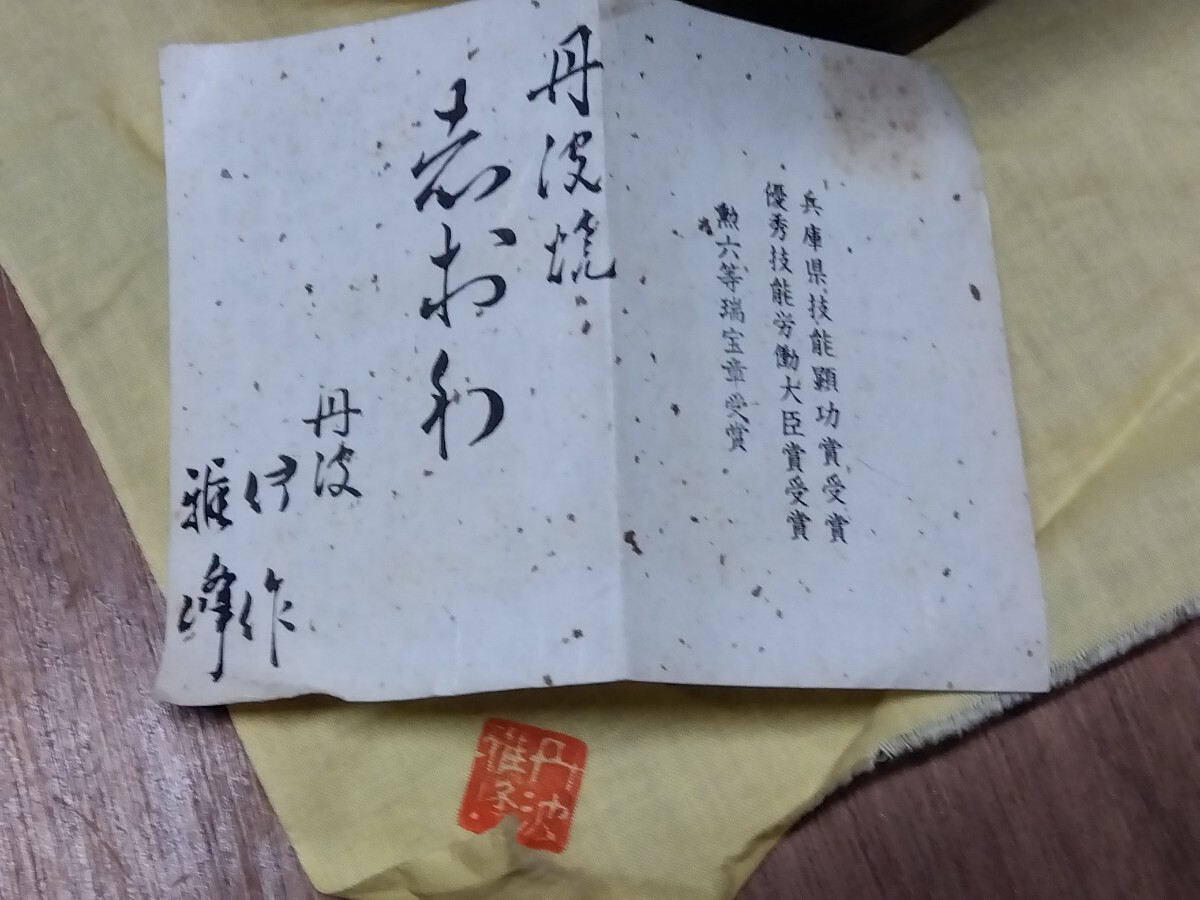 兵庫県技能顕功賞受賞
優秀技能労働大臣賞受賞
勲六等瑞宝章受賞
丹波焼
志お利
丹波
伊作
雅峰
丹波
雅